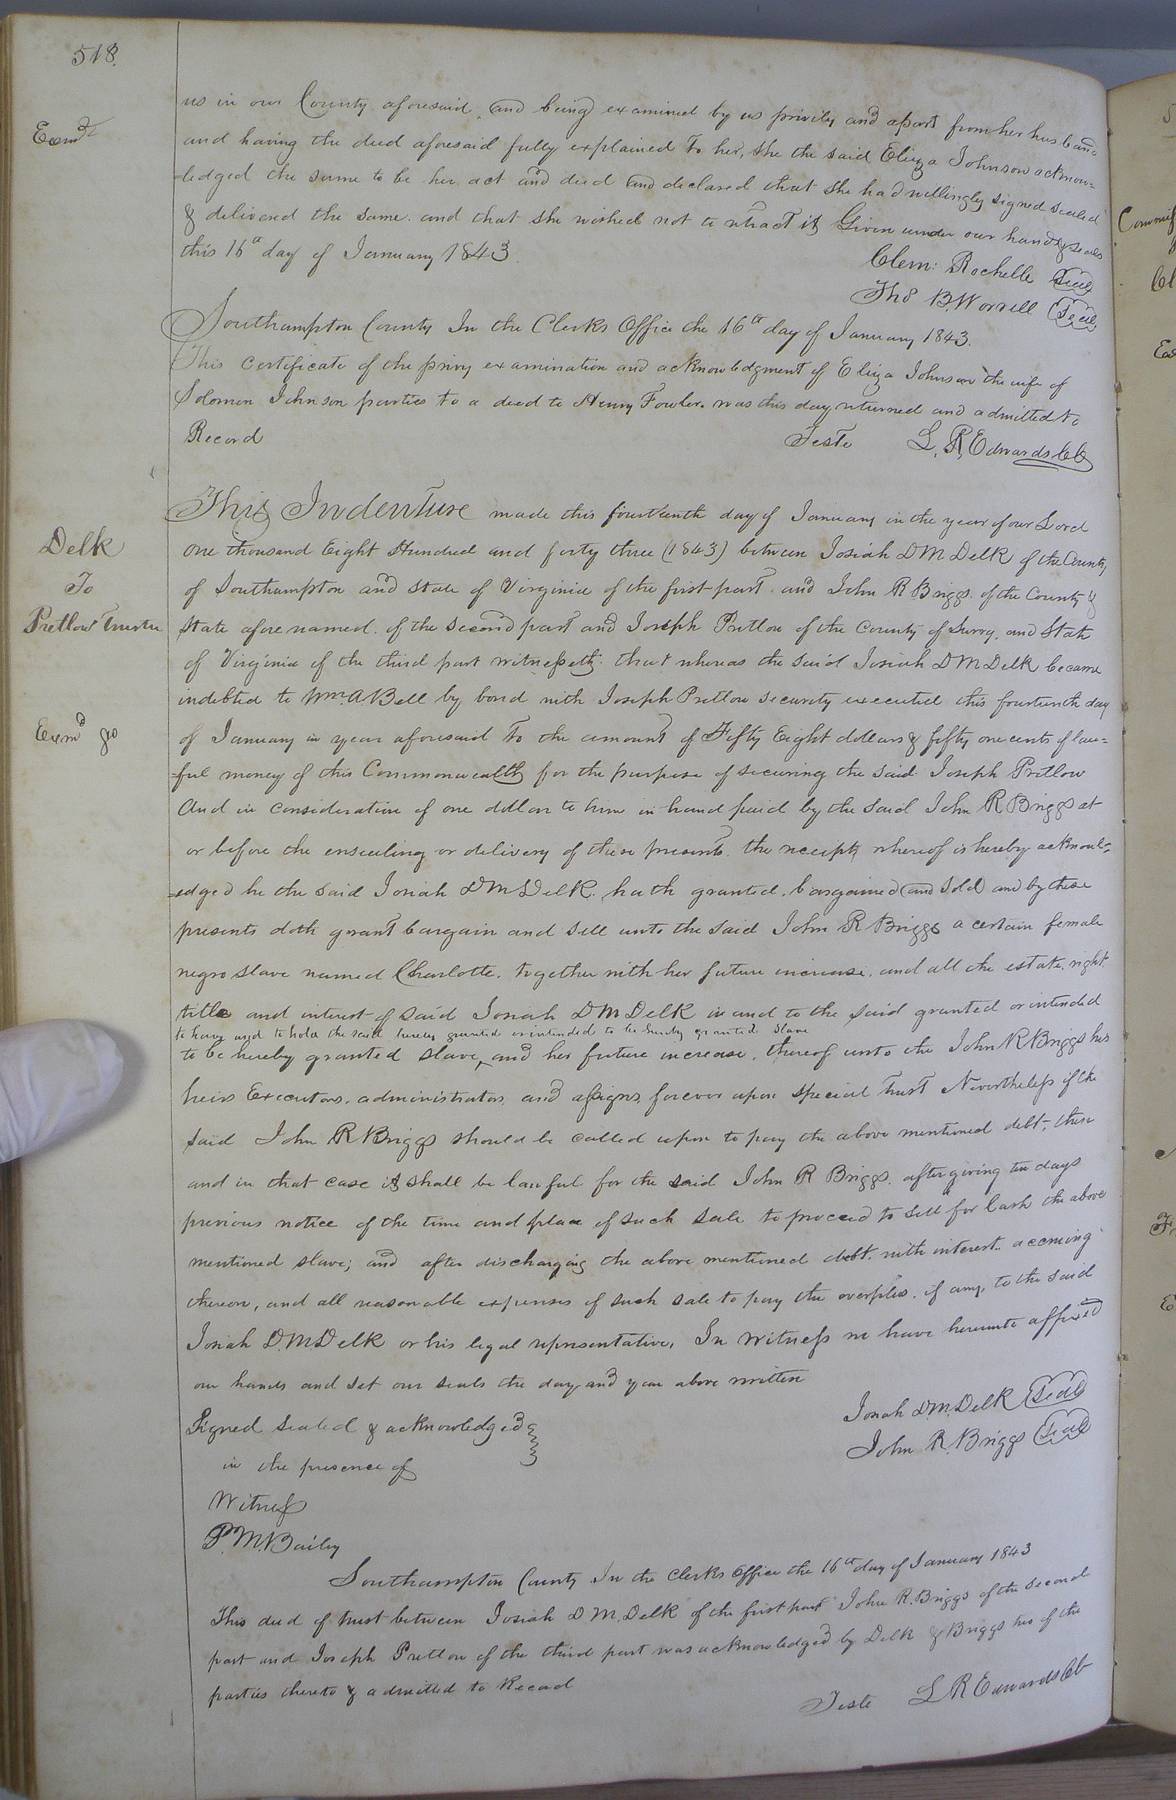 518.
us in our County aforesaid, and being examined by us privily and apart from her husband
Exmd
and having the deed aforesaid fully explained to her, she the said Eliza Johnson acknow=
=ledged the same to be her act and deed and declared that she had willingly signed sealed
& delivered the same. and that she wished not to retract it Given under our hands & seals
this 16th day of January 1843.
Clem: Rochelle Seal
Thos B. Worrell Seal
Southampton County In the Clerks Office the 16th day of January 1843.
This Certificate of the privy examination and acknowledgment of Eliza Johnson the wife of
Solomon Johnson parties to a deed to Henry Fowler. was this day returned and admitted to
Record
Teste L. R. Edwards Clk
This Indenture made this fourteenth day of January in the year of our Lord
Delk
To
Pretlow Trustee
one thousand Eight Hundred and forty three (1843) between Josiah D M Delk of the County
of Southampton and State of Virginia of the first part. and John R Briggs. of the County &
State afore named. of the Second part and Joseph Pretlow of the County of Surry, and State
of Virginia of the third part witnesseth: that whereas the said Josiah D M Delk became
indebted to Wm. A Bell by bond with Joseph Pretlow Security executed this fourteenth day
Exmd
of January in year aforesaid to the amount of Fifty Eight dollars & fifty one cents of law=
=ful money of this Commonwealth for the purpose of securing the said Joseph Pretlow
And in consideration of one dollar to him in hand paid by the said John R Briggs at
or before the ensealing or delivery of these presents. the receipt whereof is hereby acknowl=
=edged he the said Josiah D M Delk. hath granted. bargained and Sold and by these
presents doth grant bargain and sell unto the said John R Briggs a certain female
negro slave named Charlotte. together with her future increase. and all the estate, right
title and interest of said Josiah D M Delk in and to the said granted or intended
to have and to hold the said hereby granted or intended to be hereby granted slave
to be hereby granted slave, and her future increase, thereof unto the John R Briggs his
heirs Executors. administrators and assigns forever upon special trust Nevertheless if the
said John R Briggs should be called upon to pay the above mentioned debt; then
and in that case it shall be lawful for the said John R Briggs. after giving ten days
previous notice of the time and place of such sale to proceed to sell for Cash the above
mentioned slave; and after discharging the above mentioned debt. with interest. accruing
thereon, and all reasonable expenses of such sale to pay the overplus. if any, to the said
Josiah D M Delk or his legal representative, In witness we have hereunto affixed
our hands and set our seals the day and year above written
Josiah D M. Delk Seal
Signed sealed & acknowledged
John R. Briggs Seal
in the presence of
Witness
P. M. Bailey
Southampton County In the Clerks Office the 16th day of January 1843
This deed of trust between Josiah D M. Delk of the first part John R. Briggs of the second
part and Joseph Pretlow of the third part was acknowledged by Delk & Briggs two of the
parties thereto & admitted to Record
Teste L R Edwards Clk